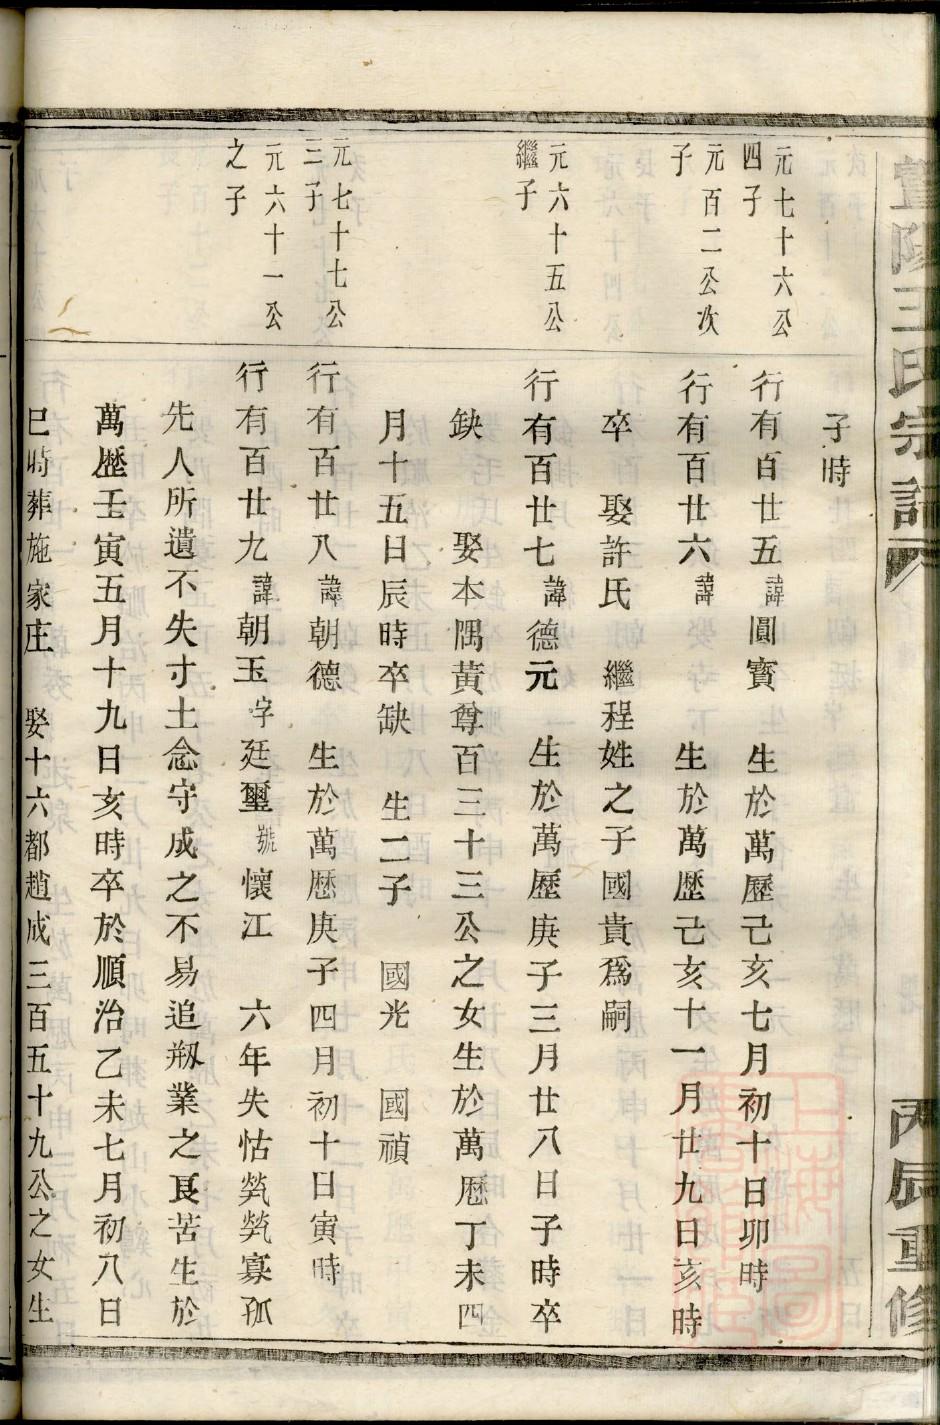 暨陽王氏宗譜
丙辰重修
子時
元七十六公
四子
行有百廿五諱圓寳 生於萬歷己亥七月初十日卯時
元百二公次
子
行有百廿六諱 生於萬歷己亥十一月廿九日亥時
卒 娶許氏 繼程姓之子國貴爲嗣
元六十五公
繼子
行有百廿七諱德元 生於萬歷庚子三月廿八日子時卒
缺 娶本隅黃尊百三十三公之女生於萬歷丁未四
月十五日辰時卒缺 生二子 國光 國禎
元七十七公
三子
行有百廿八諱朝德 生於萬歷庚子四月初十日寅時
元六十一公
之子
行有百廿九諱朝玉字廷璽號懷江 六年失怙煢煢寡孤
先人所遺不失寸土念守成之不易追剙業之艮苦生於
萬歷壬寅五月十九日亥時卒於順治乙未七月初八日
巳時葬施家庄 娶十六都趙成三百五十九公之女生